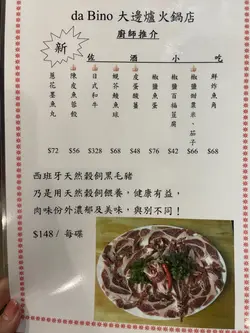 da Bino 大邊爐火鍋店
廚師推介
新
佐酒小吃
蔥花墨魚丸
陳皮魚蓉餃
日式和牛
蜆芥鯪魚球
皮蛋
椒鹽魚蛋
椒鹽百福豆腐
椒鹽甜農菜·茄子
鮮炸魚角
$72 $56 $328 $68 $48 $42 $66 $68
西班牙天然穀飼黑毛豬
乃是用天然穀飼餵養，健康有益，
肉味份外濃郁及美味，與別不同！
$148 / 每碟